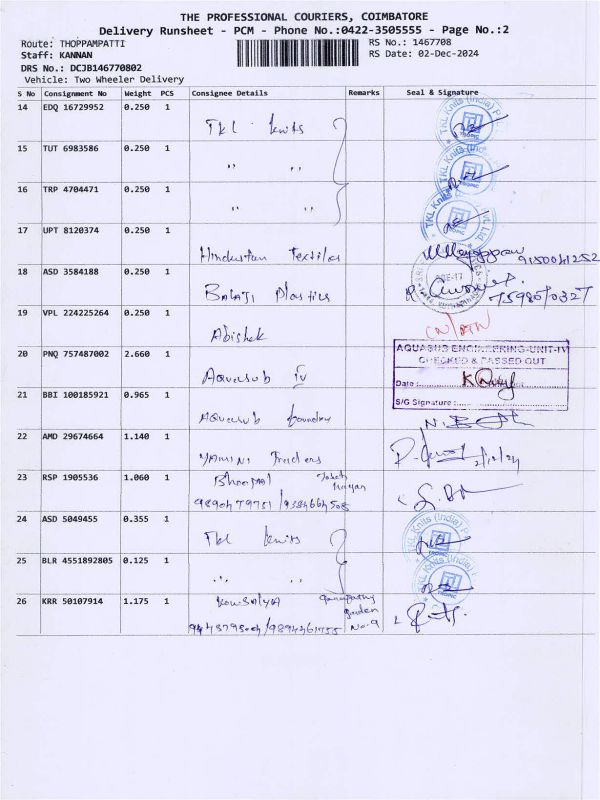 THE PROFESSIONAL COURIERS, COIMBATORE
Delivery Runsheet - PCM - Phone No.:0422-3505555 - Page No.:2
Route: THOPPAMPATTI
RS No.: 1467708
Staff: KANNAN
RS Date: 02-Dec-2024
DRS No.: DCJB146770802
Vehicle: Two Wheeler Delivery
S No Consignment No Weight PCS Consignee Details Remarks Seal & Signature
14 EDQ 16729952 0.250 1
TKL Knits
15 TUT 6983586 0.250 1
" "
16 TRP 4704471 0.250 1
" "
17 UPT 8120374 0.250 1
Hindustan Textiles
9150041252
18 ASD 3584188 0.250 1
BALAJI Plastics
19 VPL 224225264 0.250 1
Abishek
20 PNQ 757487002 2.660 1
Aquasub IV
AQUASUB ENGINEERING-UNIT-IV
CHECKED & PASSED OUT
Date :
S/G Signature :
21 BBI 100185921 0.965 1
Aquasub foundry
22 AMD 29674664 1.140 1
YAMINI Traders
2/12/24
23 RSP 1905536 1.060 1
24 ASD 5049455 0.355 1
TKL Knits
25 BLR 4551892805 0.125 1
" "
26 KRR 50107914 1.175 1
Kowsalya Ganapathy
garden
No-9